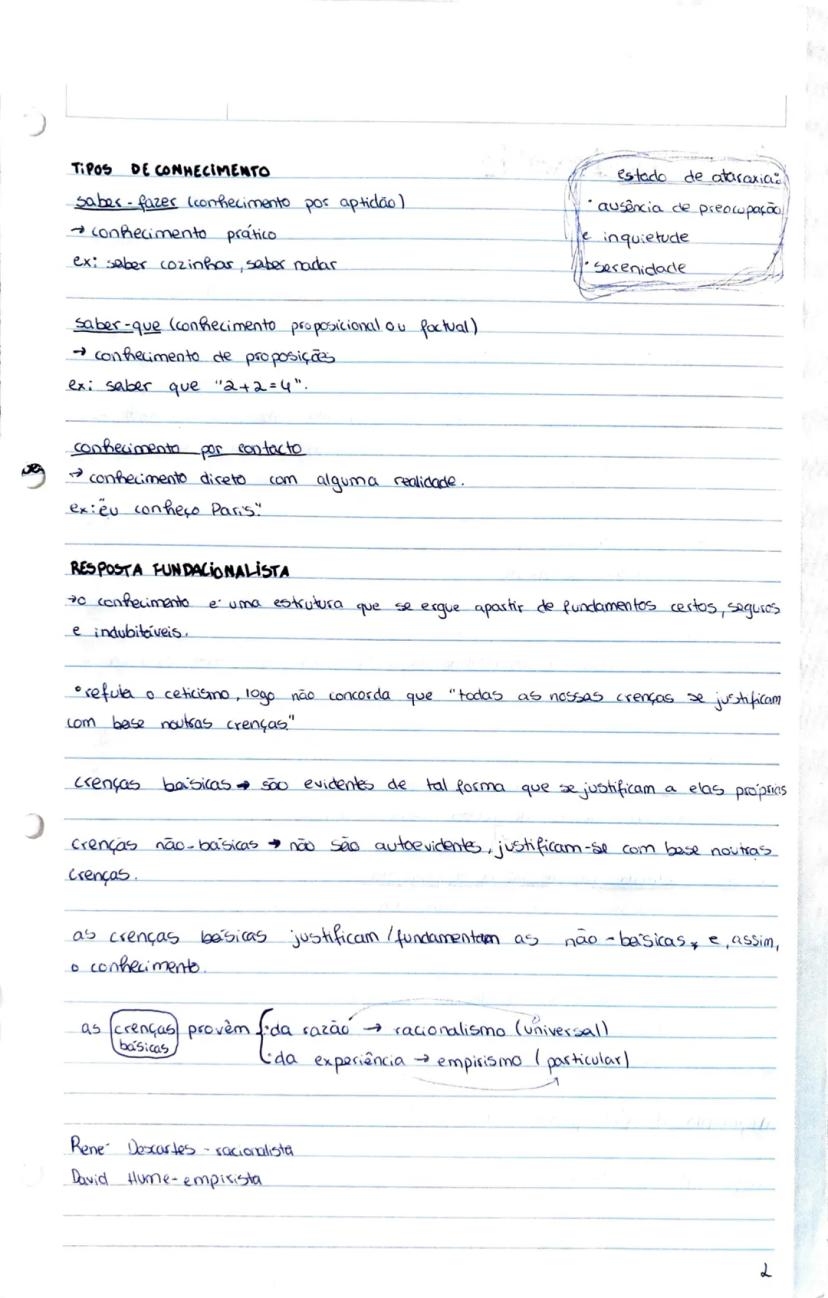 TIPOS DE CONHECIMENTO
saber-fazer (conhecimento por aptidão)
→ conhecimento prático
ex: saber cozinhar, saber nadar
estado de ataraxia:
• ausência de preocupação
e inquietude
• serenidade
saber-que (conhecimento proposicional ou factual)
→ conhecimento de proposições
ex: saber que "2+2=4".
conhecimento por contacto
→ conhecimento direto com alguma realidade.
ex: "eu conheço Paris."
RESPOSTA FUNDACIONALISTA
→ o conhecimento é uma estrutura que se ergue apartir de fundamentos certos, seguros
e indubitáveis.
• refuta o ceticismo, logo não concorda que "todas as nossas crenças se justificam
com base noutras crenças"
crenças básicas → são evidentes de tal forma que se justificam a elas próprias
crenças não-básicas → não são autoevidentes, justificam-se com base noutras
crenças.
as crenças básicas justificam/fundamentam as não-básicas, e, assim,
o conhecimento.
as crenças básicas provêm { • da razão → racionalismo (universal)
• da experiência → empirismo (particular)
René Descartes - racionalista
David Hume - empirista
2